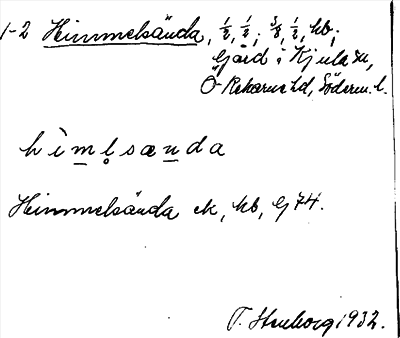 1-2 Himmelsända, 1/2, 1/2; 3/8, 1/2, hb;
Gård i Kjula sn,
Ö-Rekarne hd, Söderm. l.
hìml̥sænda
Himmelsända ek, hb, G 74.
T. Stenborg 1932.